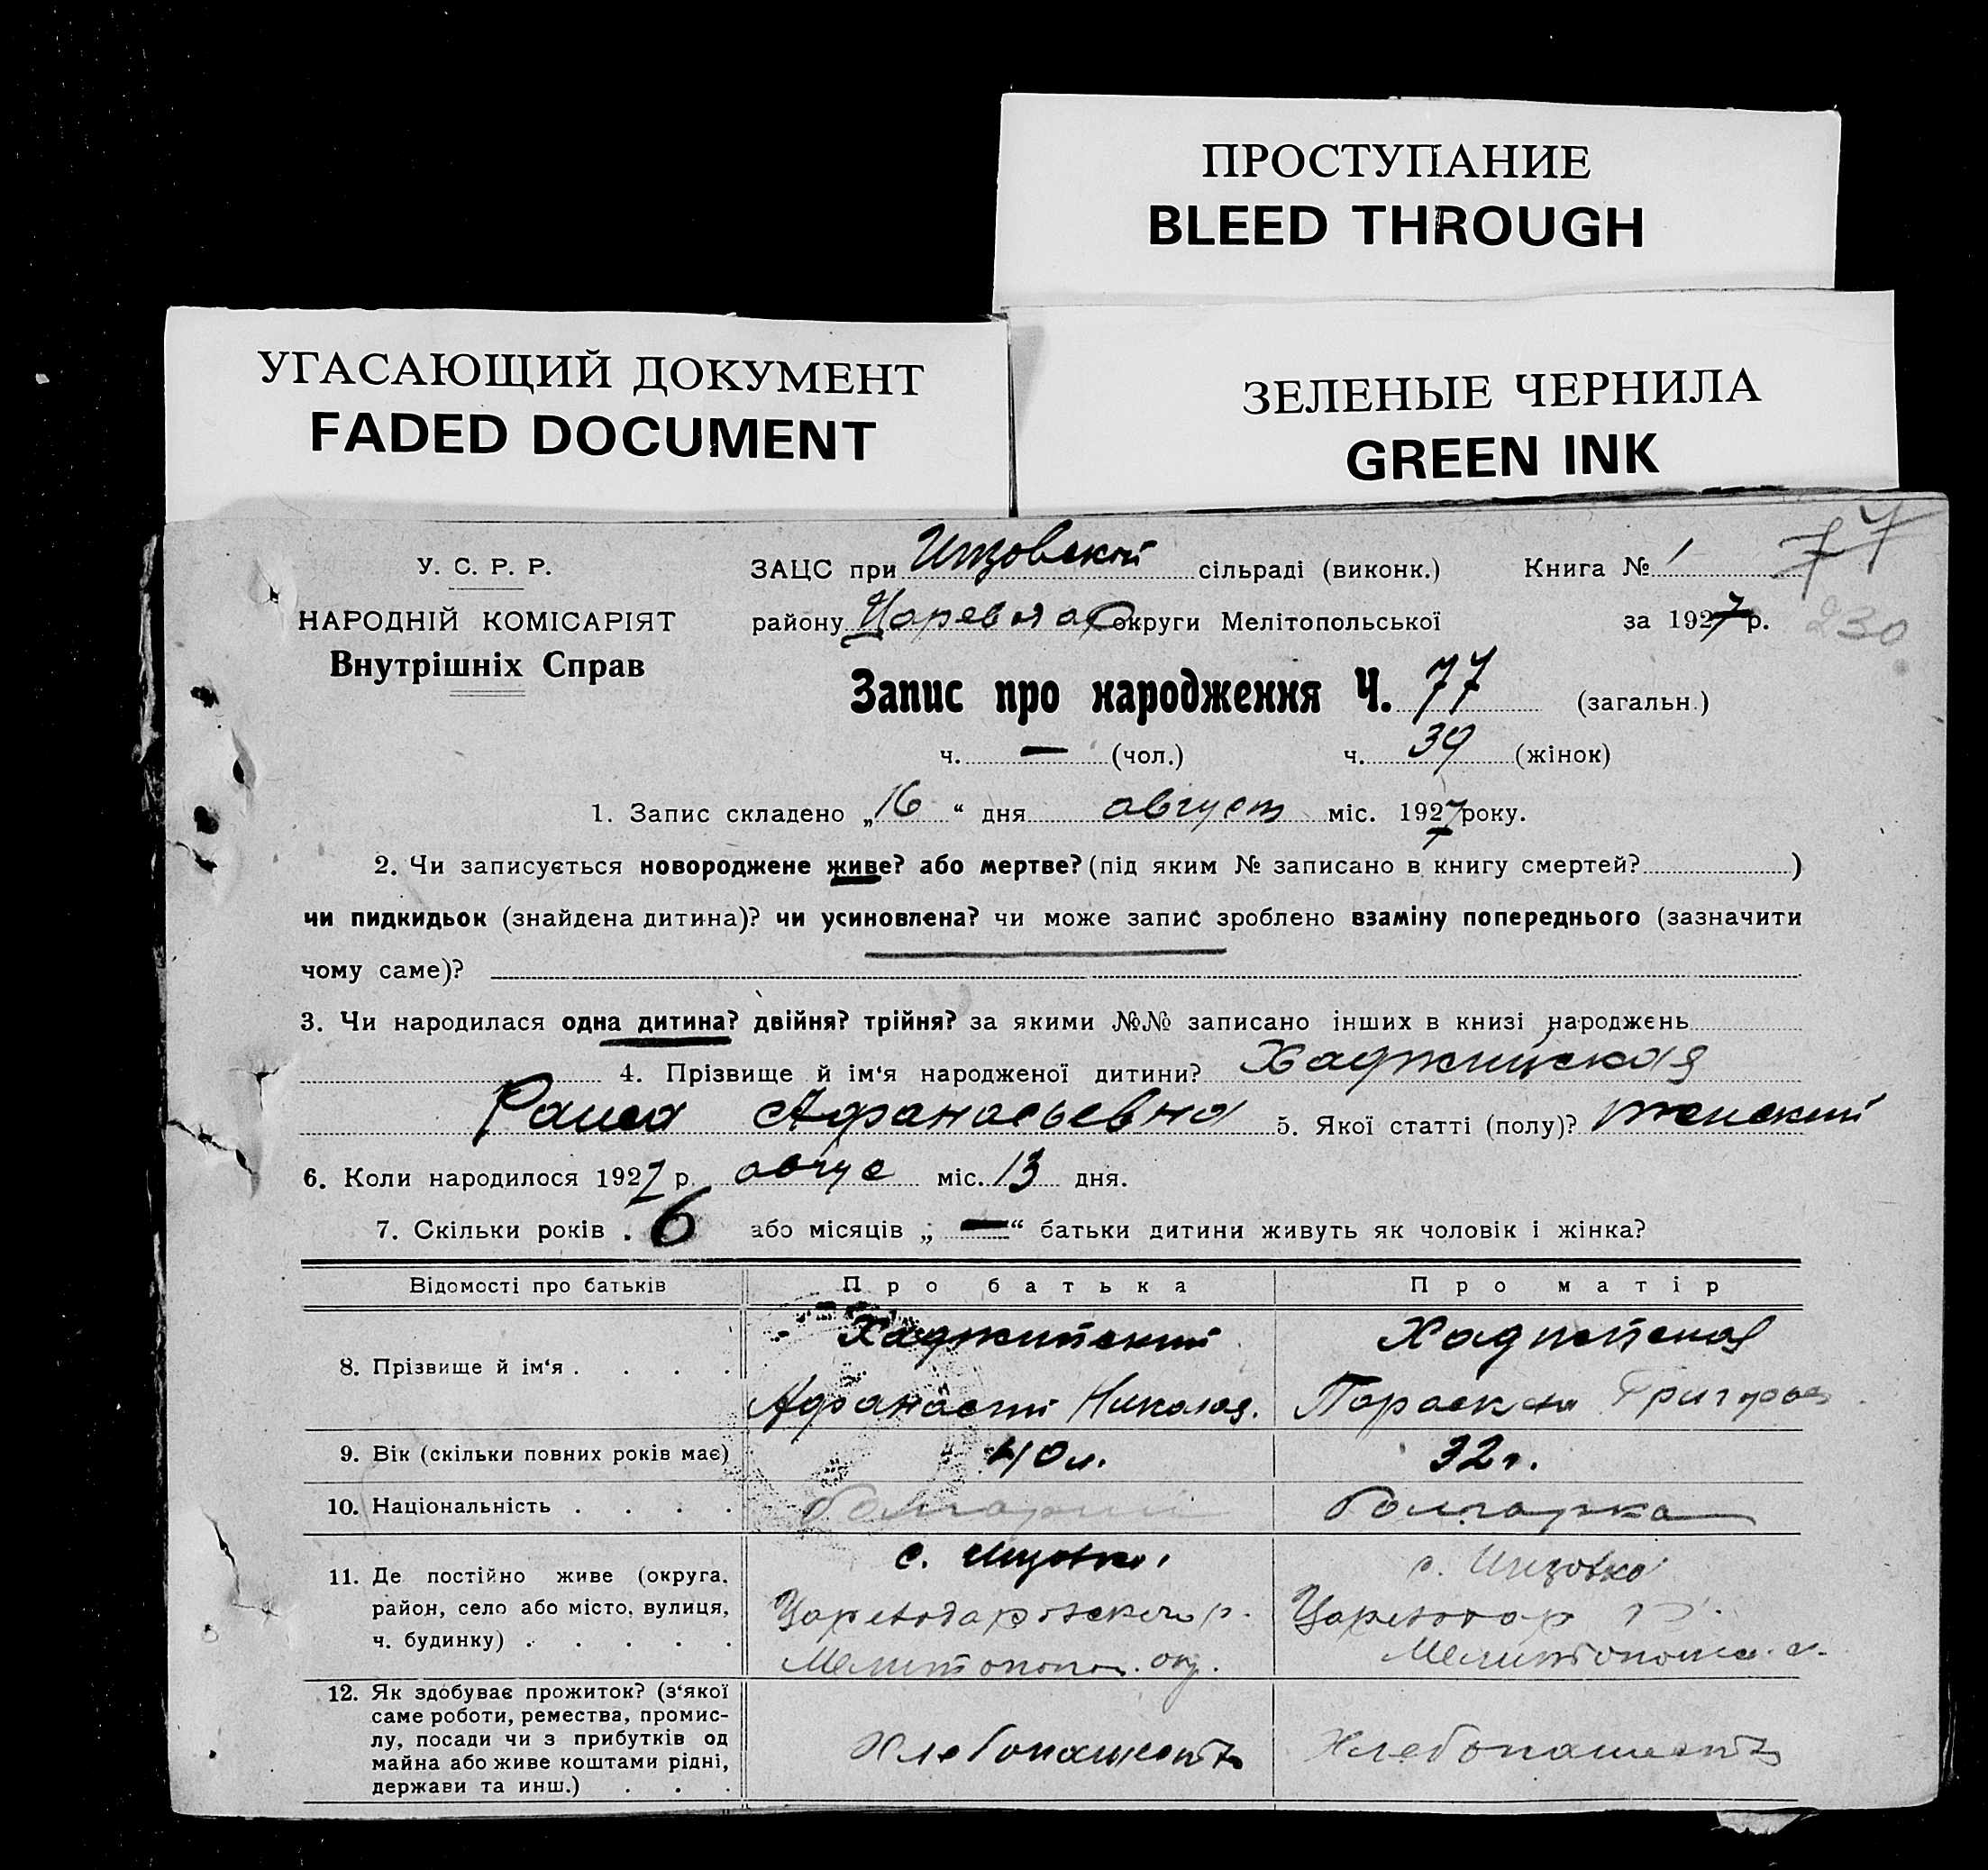 ПРОСТУПАНИЕ
BLEED THROUGH
УГАСАЮЩИЙ ДОКУМЕНТ
FADED DOCUMENT
ЗЕЛЕНЫЕ ЧЕРНИЛА
GREEN INK
77
230
У. С. Р. Р.
НАРОДНІЙ КОМІСАРІЯТ
Внутрішніх Справ
ЗАЦС при сільраді (виконк.) Книга № 1
району округи Мелітопольської за 1927 р.
Запис про народження Ч. 77 (загальн.)
ч. — (чол.) ч. 39 (жінок)
1. Запис складено „16“ дня август міс. 1927 року.
2. Чи записується новороджене живе? або мертве? (під яким № записано в книгу смертей? )
чи пидкидьок (знайдена дитина)? чи усиновлена? чи може запис зроблено взаміну попереднього (зазначити
чому саме)?
3. Чи народилася одна дитина? двійня? трійня? за якими №№ записано інших в книзі народжень
4. Прізвище й ім‘я народженої дитини? Хаджийская
Раиса Афанасьевна 5. Якої статті (полу)? женский
6. Коли народилося 1927 р. авгус міс. 13 дня.
7. Скільки років 6 або місяців „—“ батьки дитини живуть як чоловік і жінка?
Відомості про батьків Про батька Про матір
8. Прізвище й ім‘я . . . .
Хаджийский
Афанасий Николая.
Хаджийская
Параскева Григорьев
9. Вік (скільки повних років має) 40 л. 32 г.
10. Національність . . . . болгарин болгарка
11. Де постійно живе (округа,
район, село або місто, вулиця,
ч. будинку) . . . . .
Цареводаровского р.
Мелитопол. окр.
Цареводар р.
12. Як здобуває прожиток? (з‘якої
саме роботи, ремества, промис-
лу, посади чи з прибутків од
майна або живе коштами рідні,
держави та инш.) . . .
Хлебопашество
Хлебопашество